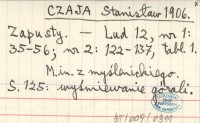 CZAJA Stanisław 1906.
Zapusty. — Lud 12, nr 1:
35-56; nr 2: 122-137, tabl. 1.
M.in. z myślenickiego.
S. 125: wyśmiewanie górali.
BT/009/0344